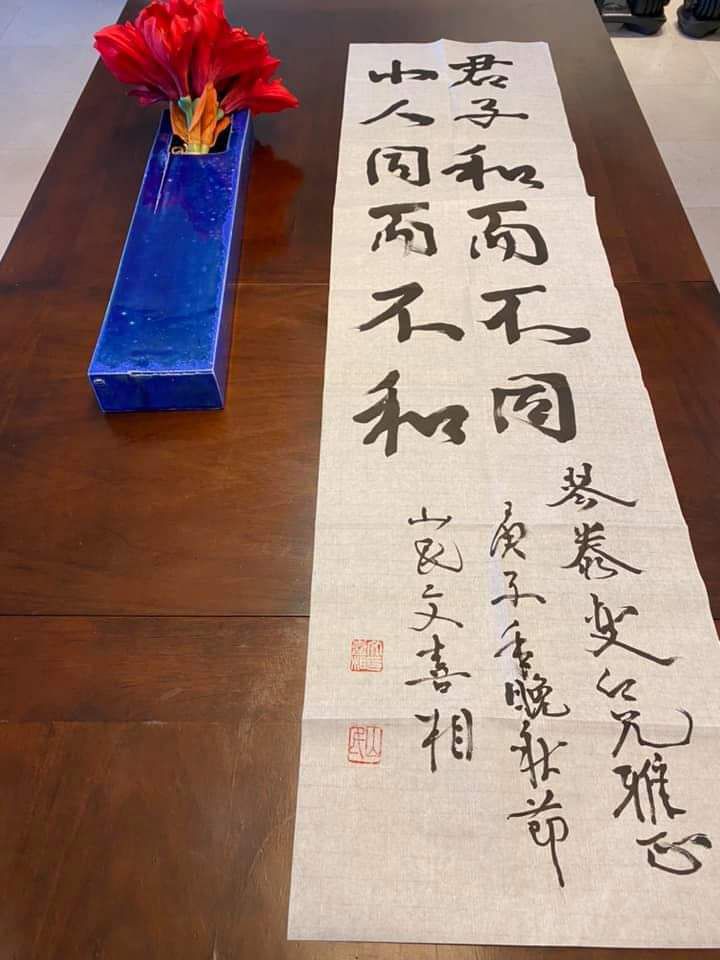 君子和而不同
小人同而不和
琴泰燮仁兄雅正
庚子秊晚秋節
山民文喜相
山民